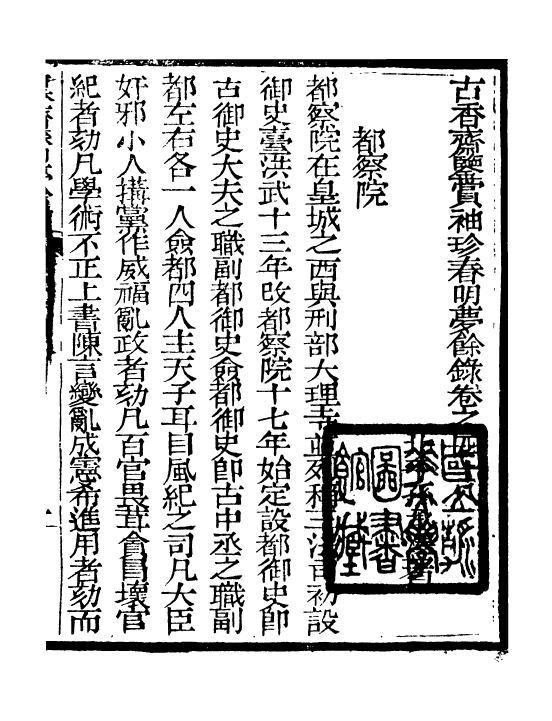 古香齋鑒賞袖珍春明夢餘錄卷之四
都察院
都察院在皇城之西與刑部大理寺並列稱三法司初設
御史臺洪武十三年改都察院十七年始定設都御史即
古御史大夫之職副都御史僉都御史即古中丞之職副
都左右各一人僉都四人主天子耳目風紀之司凡大臣
奸邪小人搆黨作威福亂政者劾凡百官畏茸貪冒壞官
紀者劾凡學術不正上書陳言變亂成憲希進用者劾而